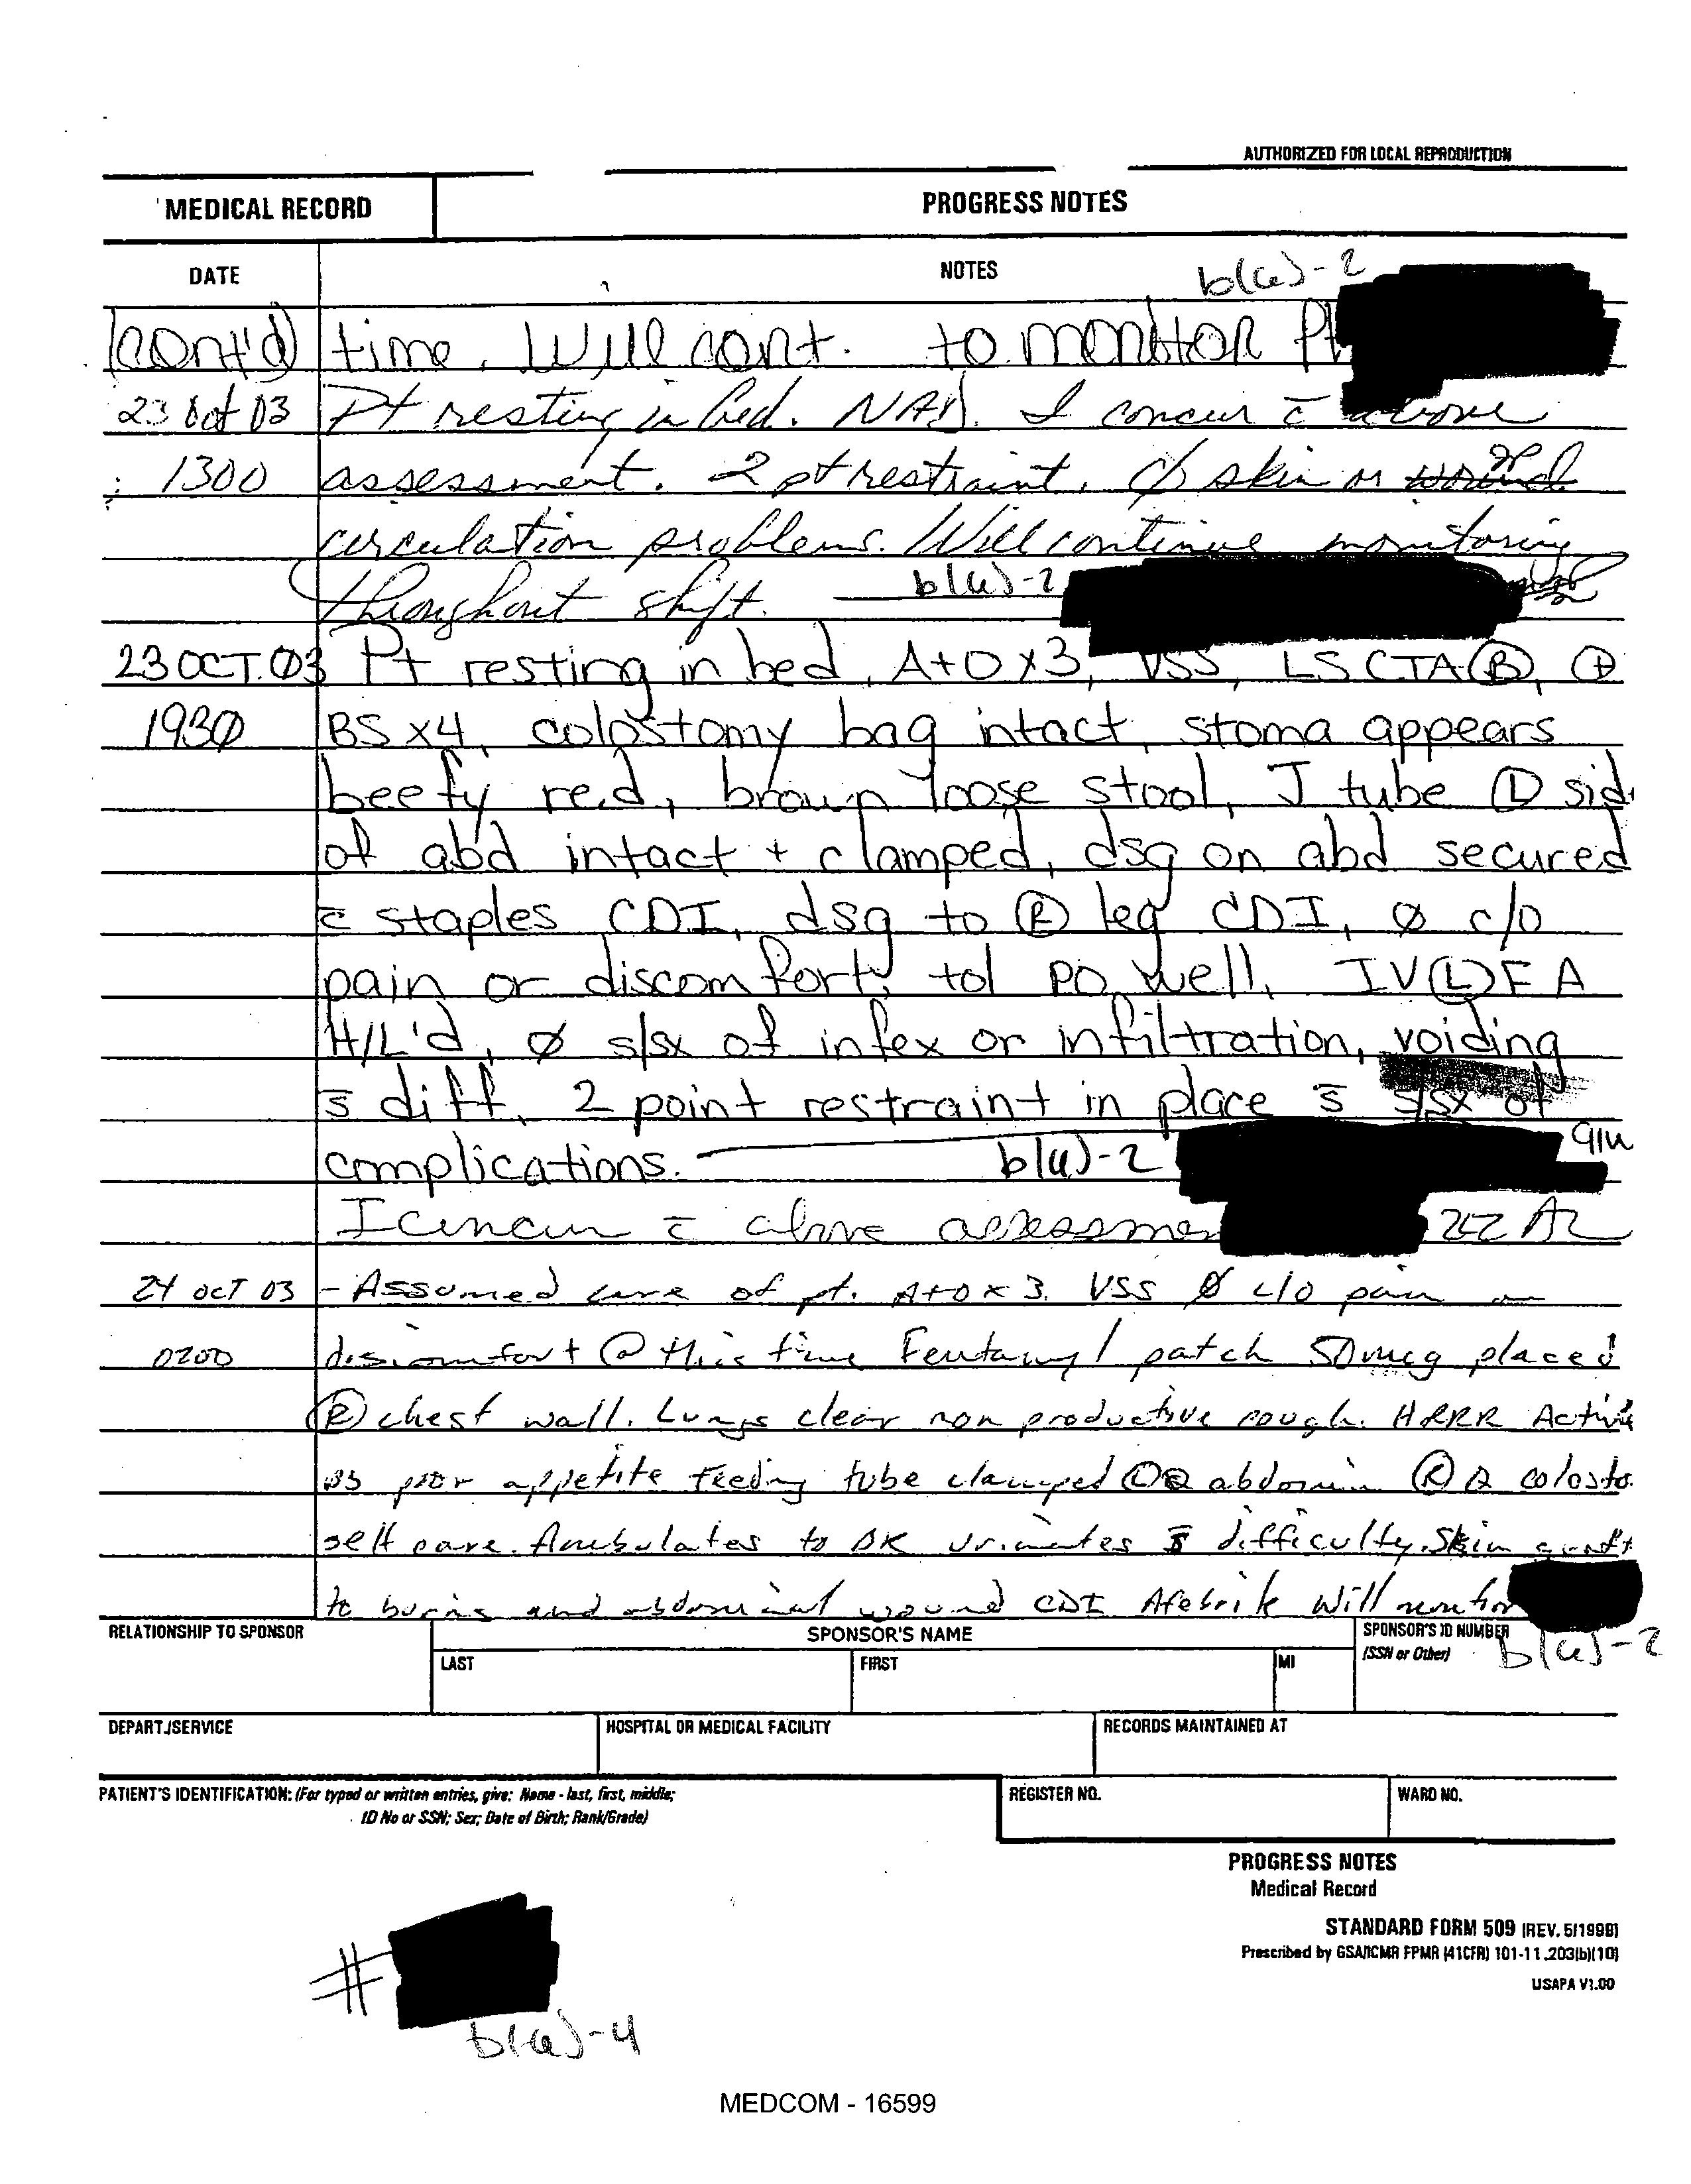 AUTHORIZED FOR LOCAL REPRODUCTION
MEDICAL RECORD PROGRESS NOTES
DATE NOTES b(6)-2
(cont'd) time. Will cont. to monitor Pt
23 Oct 03 Pt resting in bed. NAD. I concur c̄ above
1300 assessment. 2 pt restraint. Ø skin or
circulation problems. Will continue monitoring
throughout shift. b(6)-2
23 OCT. 03 Pt resting in bed, A+O x3, VSS, LSCTA Ⓑ, ⊕
193Ø BS x4, colostomy bag intact, stoma appears
beefy red, brown loose stool, J tube Ⓛ sid
of abd intact + clamped, dsg on abd secured
c̄ staples CDI, dsg to Ⓡ leg CDI, Ø c/o
pain or discomfort, tol po well, IV Ⓛ FA
H/L'd, Ø s/sx of infex or infiltration, voiding
s̄ diff, 2 point restraint in place s̄ s/sx of
complications. b(6)-2 91W
I concur c̄ above assessmen
24 OCT 03 - Assumed care of pt. A+O x 3. VSS Ø c/o pain or
0200 discomfort @ this time Fentanyl patch 50mcg placed
Ⓡ chest wall. Lungs clear non productive cough. HRRR Active
BS poor appetite Feeding tube clamped Ⓛ abdomin Ⓡ colosto
self care. Ambulates to BR urinates s̄ difficulty. Skin graft
to burns and abdominal wound CDI Afebrile Will monitor
RELATIONSHIP TO SPONSOR SPONSOR'S NAME SPONSOR'S ID NUMBER
LAST FIRST MI (SSN or Other) b(6)-2
DEPART./SERVICE HOSPITAL OR MEDICAL FACILITY RECORDS MAINTAINED AT
PATIENT'S IDENTIFICATION: (For typed or written entries, give: Name - last, first, middle; REGISTER NO. WARD NO.
ID No or SSN; Sex; Date of Birth; Rank/Grade)
PROGRESS NOTES
Medical Record
STANDARD FORM 509 (REV. 5/1999)
Prescribed by GSA/ICMR FPMR (41CFR) 101-11.203(b)(10)
USAPA V1.00
#
b(6)-4
MEDCOM - 16599